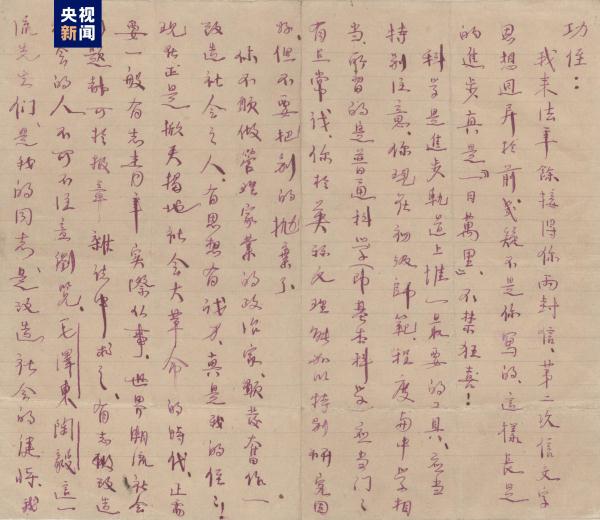 央视新闻
功侄:
我来法年余接得你两封信、第二次信文字
思想迥异于前、几疑不是你写的、这样长足
的进步真是"一日萬里"不禁狂喜!
科学是進步軌道上惟一最要的工具、应当
特别注意、你现在初级師範、程度与中学相
当、所習的是普通科学(即基本科学)应当门门
有点常识、你於英祘文理能加以特别研究固
好、但不要把别的抛棄了、
你不願做管理家業的政治家、願發奮做一
改造社会之人、有思想有识力、真是我的侄侄!
现在正是掀天揭地社会大革命的時代、正需
要一般有志青年实際从事、世界潮流社会
问题都可于报章雜誌中求之、有志做改造
社会的人不可不注意瀏覽、毛澤東陶毅這一
流先生们、是我的同志、是改造社会的健将、我